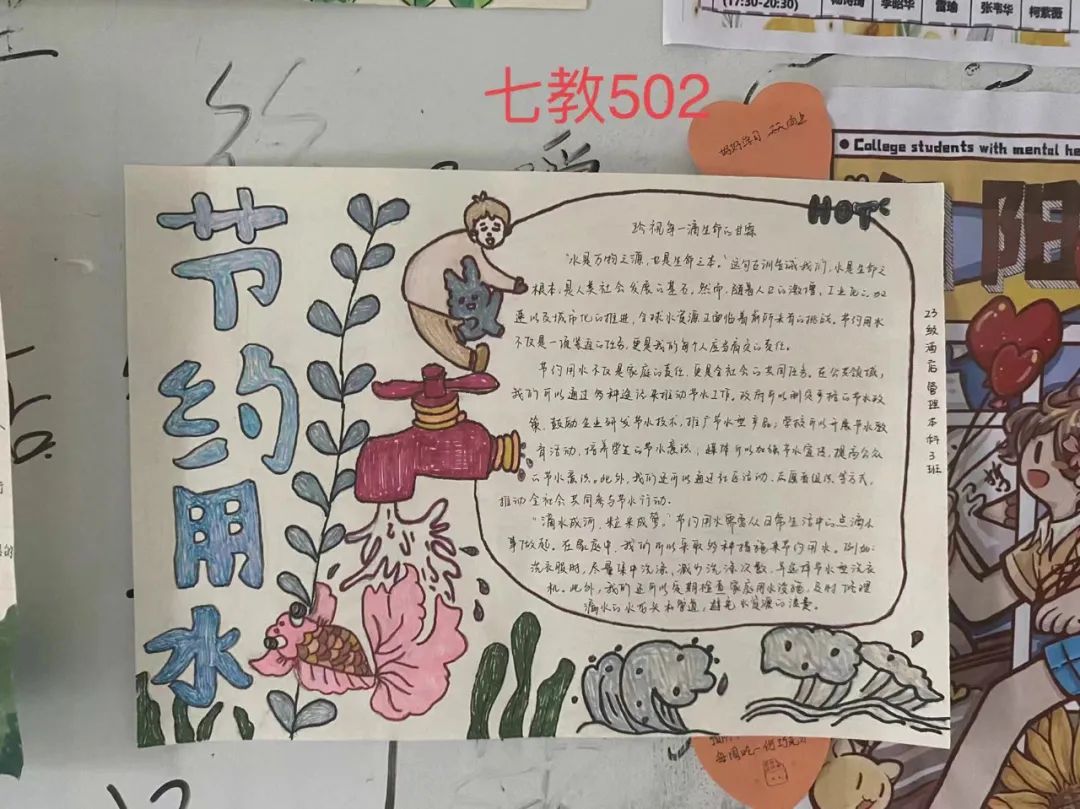 (17:30-20:30)
李昭华
雷瑜
张韦华
柯紫薇
七教502
好好学习 天天向上
College students with mental he
阳
HOT
节约用水
珍视每一滴生命的甘露
"水是万物之源,也是生命之本。"这句古训告诫我们,水是生命之
根本,是人类社会发展的基石。然而,随着人口的激增、工业化的加
速以及城市化的推进,全球水资源正面临着前所未有的挑战。节约用水
不仅是一项紧迫的任务,更是我们每个人应当肩负的责任。
节约用水不仅是家庭的责任,更是全社会的共同任务。在公共领域,
我们可以通过多种途径来推动节水工作。政府可以制定严格的节水政
策,鼓励企业研发节水技术,推广节水型产品;学校可以开展节水教
育活动,培养学生的节水意识;媒体可以加强节水宣传,提高公众
的节水意识。此外,我们还可以通过社区活动、志愿者组织等方式,
推动全社会共同参与节水行动。
"滴水成河,粒米成箩。"节约用水需要从日常生活中的点滴水
事做起。在家庭中,我们可以采取多种措施来节约用水。例如:
洗衣服时,尽量集中洗涤,减少洗涤次数,并选择节水型洗衣
机。此外,我们还可以定期检查家庭用水设施,及时修理
漏水的水龙头和管道,避免水资源的浪费。
23级酒店管理本科3班